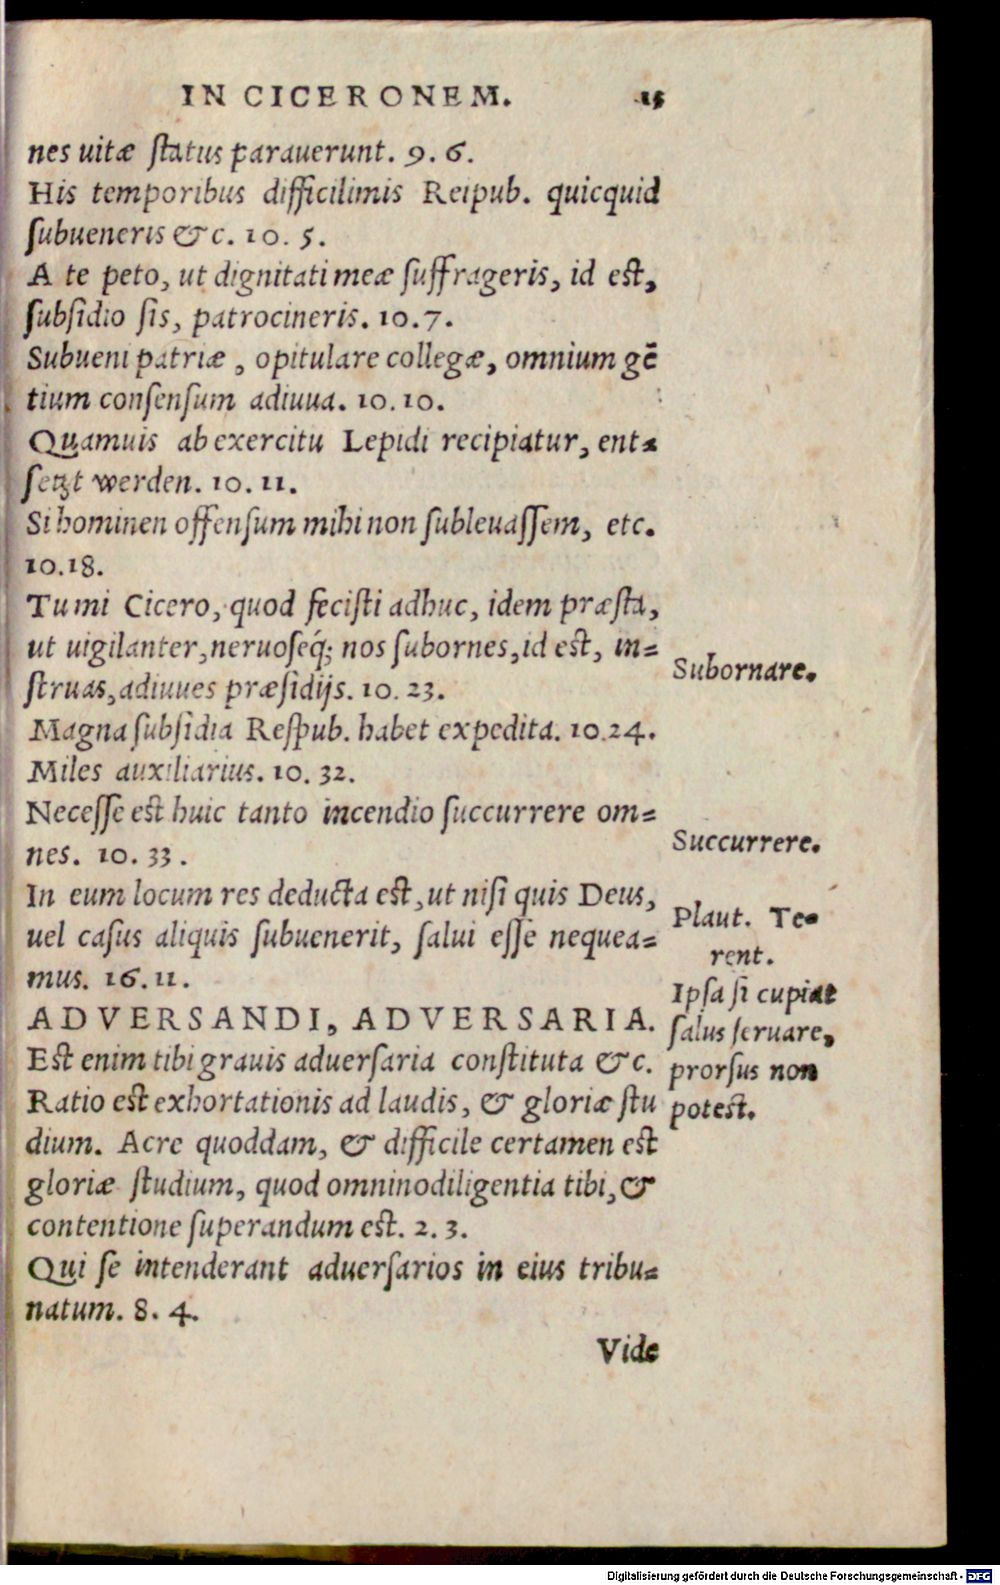 IN CICERONEM. 15
nes uitæ ſtatus parauerunt. 9. 6.
His temporibus difficilimis Reipub. quicquid
ſubueneris &c. 10. 5.
A te peto, ut dignitati meæ ſuffrageris, id est,
ſubſidio ſis, patrocineris. 10. 7.
Subueni patriæ, opitulare collegæ, omnium gẽ
tium conſenſum adiuua. 10. 10.
Quamuis ab exercitu Lepidi recipiatur, ent=
ſetzt werden. 10. 11.
Si hominen offenſum mihi non ſubleuaſſem, etc.
10.18.
Tu mi Cicero, quod feciſti adhuc, idem præſta,
ut uigilanter, neruoſeq́; nos ſubornes, id est, in=
ſtruas, adiuues præſidijs. 10. 23.
Magna ſubſidia Reſpub. habet expedita. 10.24.
Miles auxiliarius. 10. 32.
Neceſſe est huic tanto incendio ſuccurrere om=
nes. 10. 33.
In eum locum res deducta est, ut niſi quis Deus,
uel caſus aliquis ſubuenerit, ſalui eſſe nequea=
mus. 16. 11.
ADVERSANDI, ADVERSARIA.
Est enim tibi grauis aduerſaria conſtituta &c.
Ratio est exhortationis ad laudis, & gloriæ ſtu
dium. Acre quoddam, & difficile certamen est
gloriæ ſtudium, quod omnino diligentia tibi, &
contentione ſuperandum est. 2. 3.
Qui ſe intenderant aduerſarios in eius tribu=
natum. 8. 4.
Vide
Subornare.
Succurrere.
Plaut. Te=
rent.
Ipſa ſi cupiat
ſalus ſeruare,
prorſus non
potest.
Digitalisierung gefördert durch die Deutsche Forschungsgemeinschaft - DFG